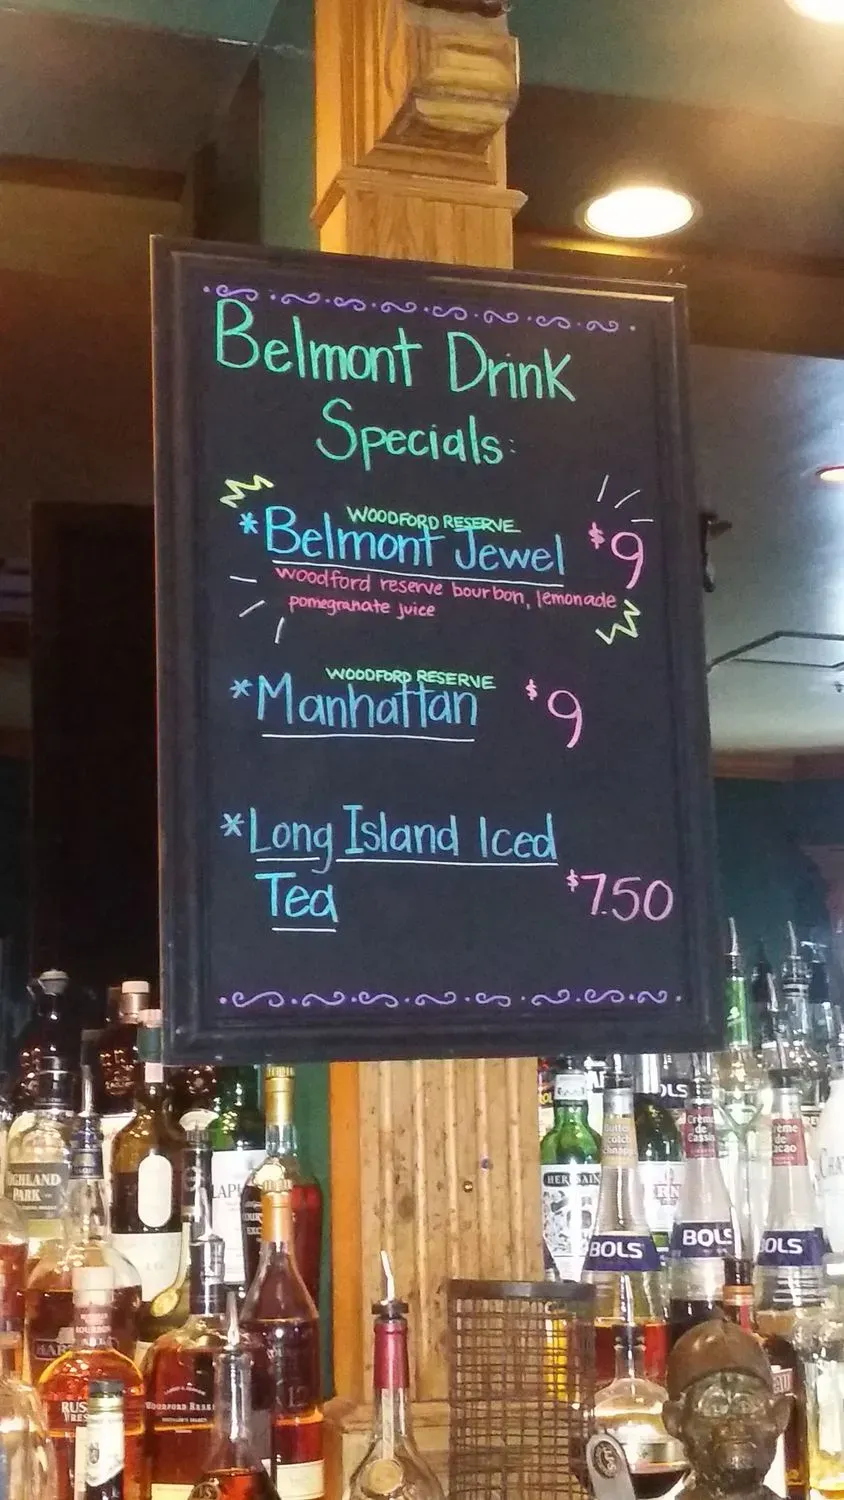 Belmont Drink
Specials:
WOODFORD RESERVE
*Belmont Jewel $9
woodford reserve bourbon, lemonade
pomegranate juice
WOODFORD RESERVE
*Manhattan $9
*Long Island Iced
Tea $7.50
HIGHLAND
PARK
Butter
scotch
Schnapps
Crème
de
Cassis
Crème
de
Cacao
HERBSAINT
BOLS
BOLS
BOLS
OLS
WOODFORD RESERVE
12